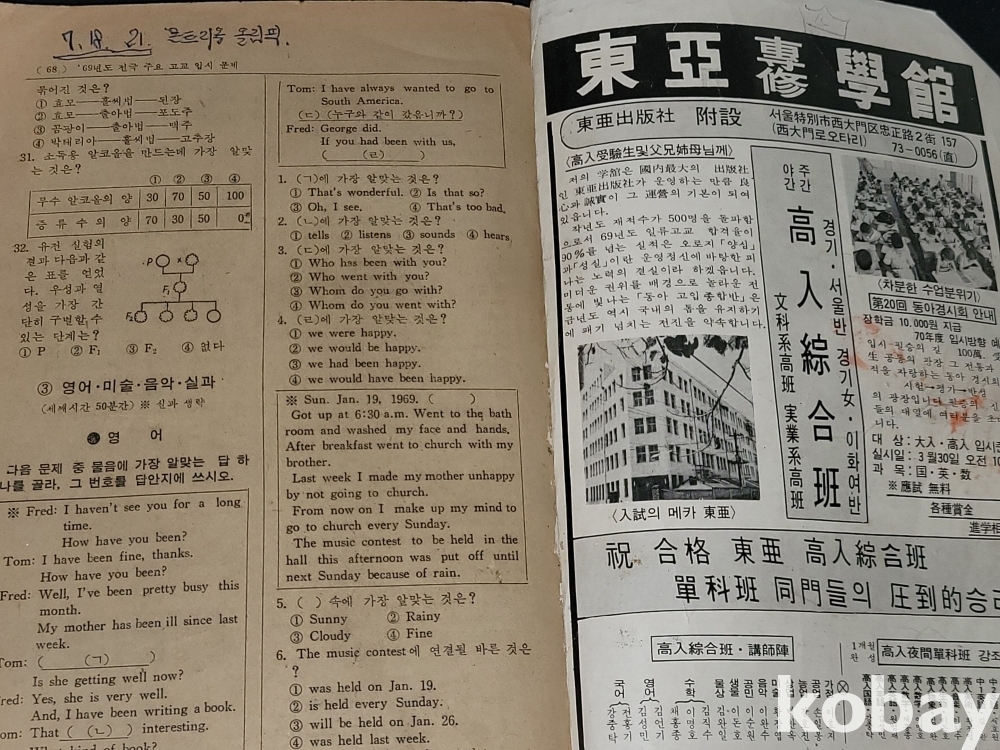 7. 18. 21. 몬트리올 올림픽.
(68) '69년도 전국 주요 고교 입시 문제
묶어진 것은?
① 효모──홀씨법──된장
② 효모──출아법──포도주
③ 곰팡이──출아법──맥주
④ 박테리아──홀씨법──고추장
31. 소독용 알코올을 만드는데 가장 알맞
는 것은?
① ② ③ ④
무수 알코올의 양 30 70 50 100
증류수의 양 70 30 50 0
32. 유전 실험의
결과 다음과 같
은 표를 얻었
다. 우성과 열
성을 가장 간
단히 구별할 수
있는 단계는?
P ×
F₁
F₂
① P ② F₁ ③ F₂ ④ 없다
③ 영어·미술·음악·실과
(세째시간 50분간) ※ 실과 생략
영 어
다음 문제 중 물음에 가장 알맞는 답 하
나를 골라, 그 번호를 답안지에 쓰시오.
※ Fred: I haven't see you for a long
time.
How have you been?
Tom: I have been fine, thanks.
How have you been?
Fred: Well, I've been pretty busy this
month.
My mother has been ill since last
week.
Tom: ( (ㄱ) )
Is she getting well now?
Fred: Yes, she is very well.
And, I have been writing a book.
Tom: That ( (ㄴ) ) interesting.
What kind of book?
Tom: I have always wanted to go to
South America.
(ㄷ) (누구와 같이 갔을니까?)
Fred: George did.
If you had been with us,
( (ㄹ) )
1. (ㄱ)에 가장 알맞는 것은?
① That's wonderful. ② Is that so?
③ Oh, I see. ④ That's too bad.
2. (ㄴ)에 가장 알맞는 것은?
① tells ② listens ③ sounds ④ hears
3. (ㄷ)에 가장 알맞는 것은?
① Who has been with you?
② Who went with you?
③ Whom do you go with?
④ Whom do you went with?
4. (ㄹ)에 가장 알맞는 것은?
① we were happy.
② we would be happy.
③ we had been happy.
④ we would have been happy.
※ Sun. Jan. 19, 1969. ( )
Got up at 6:30 a.m. Went to the bath
room and washed my face and hands.
After breakfast went to church with my
brother.
Last week I made my mother unhappy
by not going to church.
From now on I make up my mind to
go to church every Sunday.
The music contest to be held in the
hall this afternoon was put off until
next Sunday because of rain.
5. ( ) 속에 가장 알맞는 것은?
① Sunny ② Rainy
③ Cloudy ④ Fine
6. The music contest에 연결될 바른 것은
?
① was held on Jan. 19.
② is held every Sunday.
③ will be held on Jan. 26.
④ was held last week.
東亞 專修 學館
東亜出版社 附設
서울特別市西大門区忠正路2街 157
(西大門로오타리) 73-0056(直)
〈高入受験生및父兄姉母님께〉
저의 学舘은 國内最大의 出版社
인 東亜出版社가 운영하는 만큼 良
心과 誠實이 그 運営의 기본이 되여
있읍니다.
작년도 재적수가 500명을 돌파함
으로서 69년도 일류고교 합격율이
90%를 넘는 실적은 오로지 「양심」
과 「성실」이란 운영정신에 바탕한 피
나는 노력의 결실이라 하겠읍니다.
미더운 권위를 배경으로 놀라운 전
통에 빛나는 「동아 고입 종합반」은
금년도 역시 국내의 톱을 유지하기
에 패기 넘치는 전진을 약속합니다.
〈入試의 메카 東亜〉
주간
야간
高入綜合班
경기·서울반 경기女·이화여반
文科系高班 実業系高班
〈차분한 수업분위기〉
第20回 동아경시회 안내
장학금 10,000원 지급
70年度 입시방향
입시 필승의 길 100萬
적을 자랑하는 동아 경시회
시험→평가→반성
의 광장입니다
니다.
대 상: 大入·高入 입시
실시일: 3月30일 오전 10
과 목: 国·英·数
※ 應試 無料
各種賞金
進学相
祝 合格 東亜 高入綜合班
單科班 同門들의 圧到的 승리
高入綜合班·講師陣
1개월
완성
高入夜間單科班 강조
국어 영어 수학
kobay